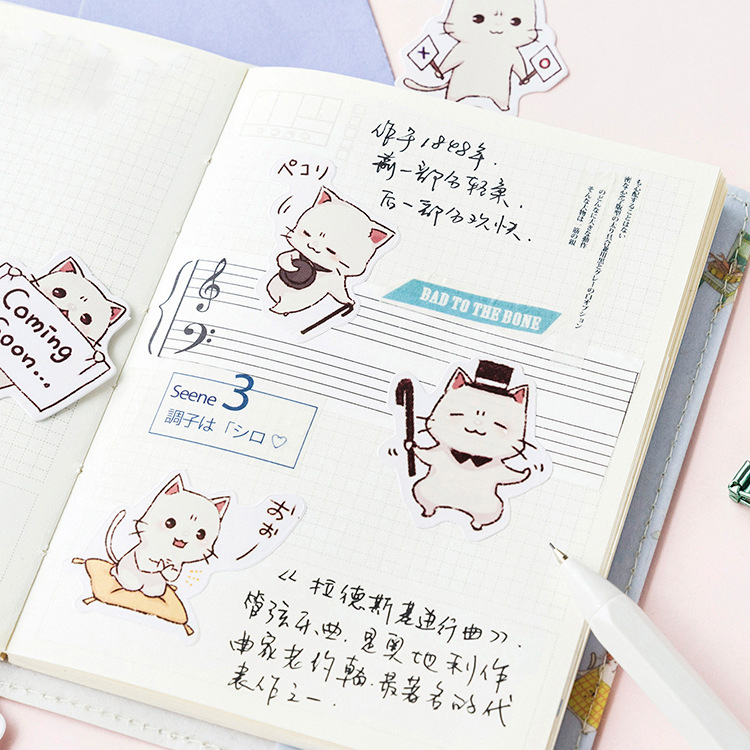 作于1848年.
前一部分轻柔,
后一部分欢快.
ペコリ
のどんなに大きな動作
そんな人物は一筋の
BAD TO THE BONE
Coming
Soon...
Seene 3
調子は「シロ♡
おぉー
《拉德斯基进行曲》.
管弦乐曲.是奥地利作
曲家老约翰.最著名的代
表作之一